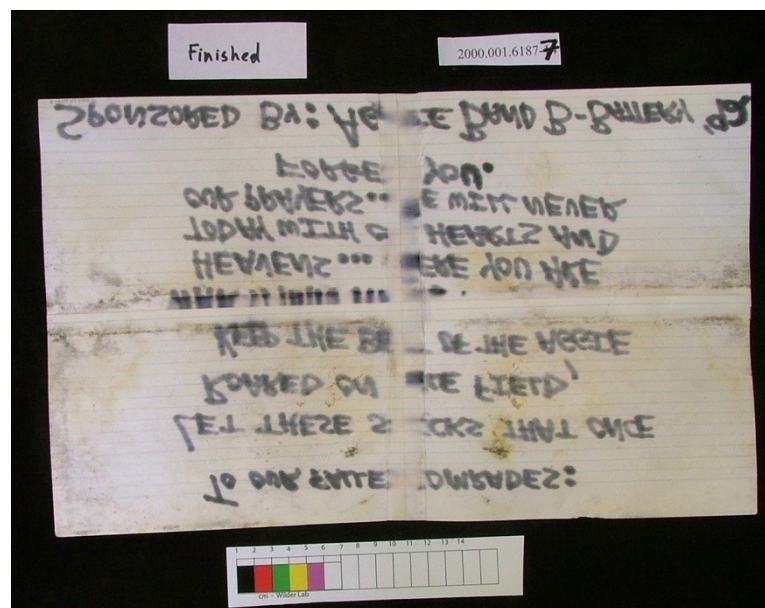 Finished
2000.001.6187-7
TO OUR FALLEN COMRADES:
LET THESE STICKS THAT ONCE
ROARED ON THE FIELD,
KEEP THE OF THE AGGIE
HEAVENS... WHERE YOU ARE
TODAY WITH OUR HEARTS AND
OUR PRAYERS... WE WILL NEVER
FORGET YOU.
SPONSORED BY: AGGIE BAND B-BATTERY
1 2 3 4 5 6 7 8 9 10 11 12 13 14
cm - Wilder Lab